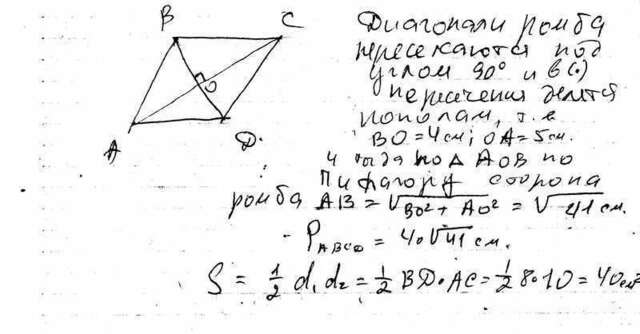 B C
A D
O
Диагонали ромба
пересекаются под
углом 90° и в (·)
пересечения делятся
пополам, т.е
BO = 4 см; OA = 5 см.
и тогда по Δ AOB по
Пифагору сторона
ромба AB = √BO² + AO² = √41 см.
P ABCD = 4·√41 см.
S = 1/2 d₁ d₂ = 1/2 BD·AC = 1/2 8·10 = 40 см²